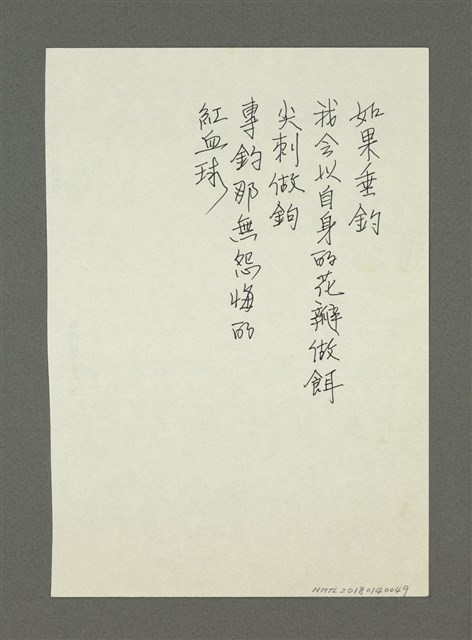 如果垂釣
我会以自身的花瓣做餌
尖刺做鉤
專釣那無怨悔的
紅血球
NMTL20180140049